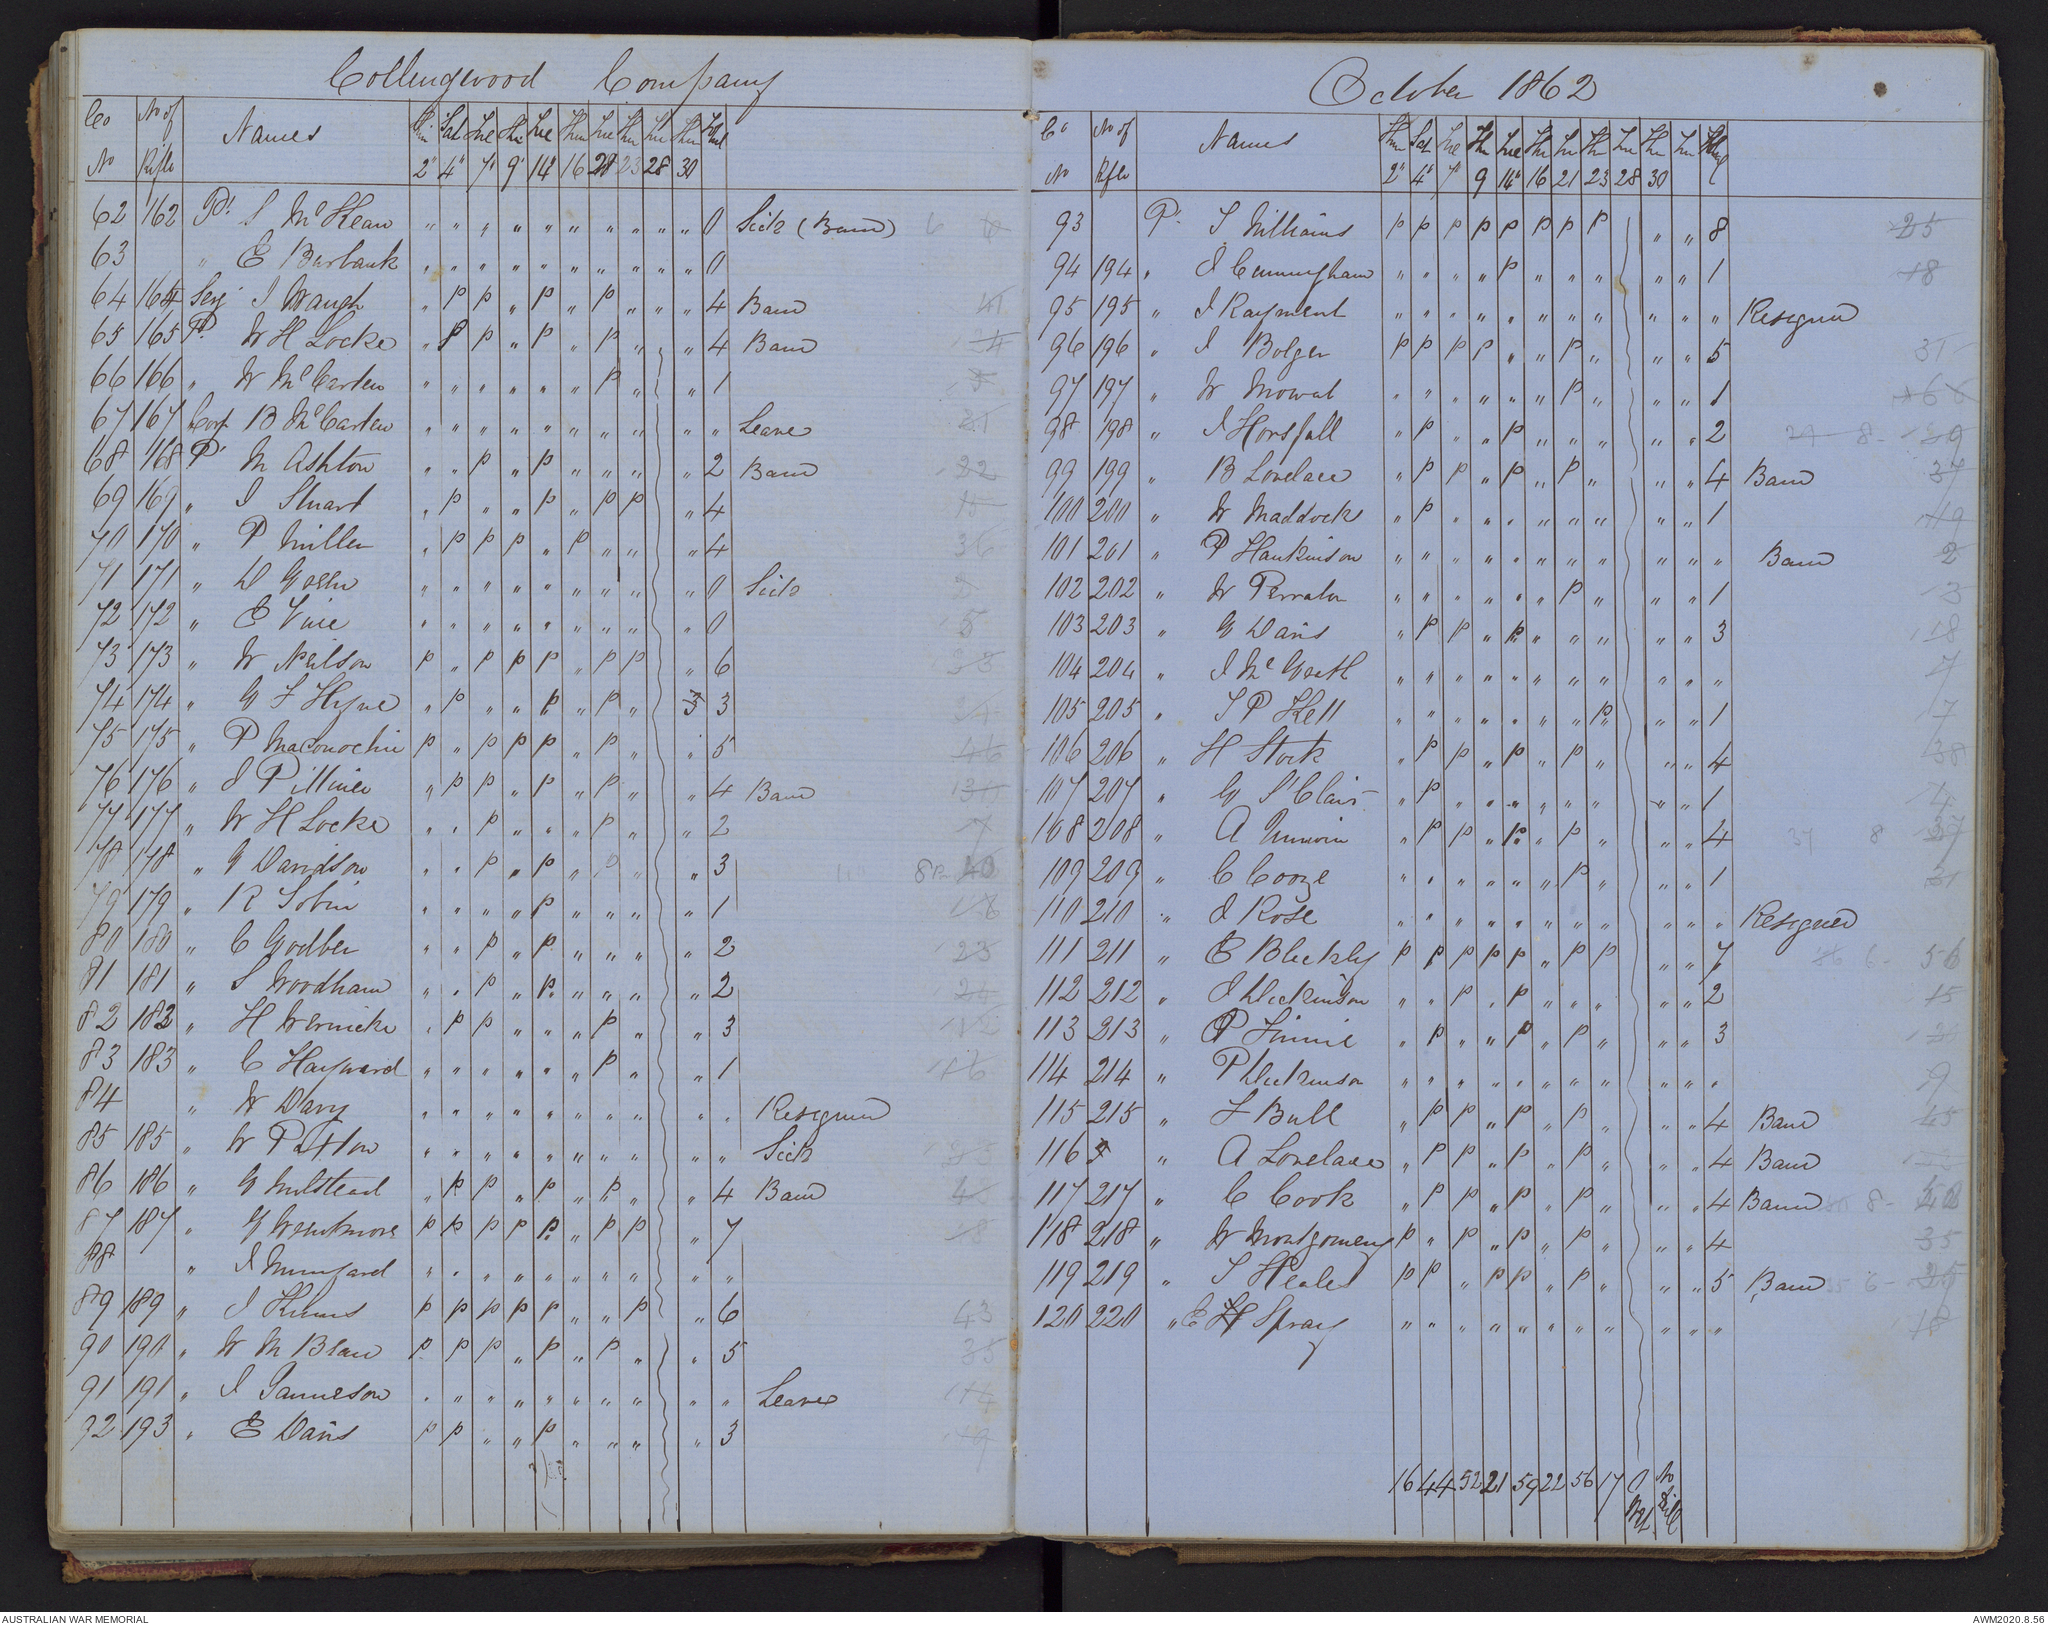 Collingwood Company
Co No of Names Thu Sat Tue Thu Tue Thu Tue Thu Tue Thu Total
No Rifle 2" 4" 7" 9" 14" 16 23 28 30
62 162 Pt S McKean " " " " " " " " " " 0 Sick (Band)
63 " E Burbank " " " " " " " " " " 0
64 164 Serj J Waugh " P P " P " P " " " 4 Band
65 165 Pt W H Locke " P P " P " P " " 4 Band
66 166 " W McCarten " " " " " " P " " 1
67 167 Corp B McCarten " " " " " " " " " " Leave
68 168 Pt M Ashton " " P " P " " " " 2 Band
69 169 " J Stuart " P " " P " P P " 4
70 170 " P Miller " P P P " P " " " 4
71 171 " D Green " " " " " " " " " 0 Sick
72 172 " E Vine " " " " " " " " " 0
73 173 " W Neilson P " P P P " P P " 6
74 174 " G F Hyne " P " " P " P " 3 3
75 175 " P Maconochie P " P P P " P " " 5
76 176 " J Pilliner " P P " P " P " " 4 Band
77 177 " W H Locke " " P " " " P " " 2
78 178 " G Davidson " " P " P " P " " 3
79 179 " R Tobin " " " " P " " " " 1
80 180 " C Godber " " P " P " " " " 2
81 181 " S Woodham " " P " P " " " " 2
82 182 " H Wernicke " P P " " " P " " 3
83 183 " C Hayward " " " " " " P " " 1
84 " W Davy " " " " " " " " " " Resigned
85 185 " W Patton " " " " " " " " " " Sick
86 186 " G Milstead " P P " P " P " " 4 Band
87 187 " G Wentmore P P P P P " P P " 7
88 " J Mumford " " " " " " " " " "
89 189 " J Kums P P P P P " " P " 6 43
90 190 " W M Blair P P P " P " P " " 5 35
91 191 " J Jamieson " " " " " " " " " " Leave
92 193 " E Davis P P " " P " " " " 3
October 1862
Co No of Names Thu Sat Tue Thu Tue Thu Tu Th Tu Th Tu
No Rifle 2" 4" 7" 9 14" 16 21 23 28 30
93 Pt T Williams P P P P P P P P " " 8 25
94 194 " J Cunningham " " " " P " " " " " 1 18
95 195 " J Rayment " " " " " " " " " " " Resigned
96 196 " J Bolger P P P P " " P " " " 5 31
97 197 " W Mowat " " " " " " P " " " 1
98 198 " J Horsfall " P " " P " " " " " 2
99 199 " B Lovelace " P P " P " P " " " 4 Band 37
100 200 " W Maddock " P " " " " " " " " 1 19
101 201 " P Hankinson " " " " " " " " " " " Band 2
102 202 " W Perraton " " " " " " P " " " 1 13
103 203 " G Davis " P P " P " " " " " 3 18
104 204 " J McGrath " " " " " " " " " " "
105 205 " T P Kell " " " " " " " P " " 1
106 206 " H Stock " P P " P " P " " " 4 38
107 207 " G St Clair " P " " " " " " " " 1
108 208 " A Unwin " P P " P " P " " " 4 37 8
109 209 " C Cooze " " " " " " P " " " 1
110 210 " J Rose " " " " " " " " " " " Resigned
111 211 " E Bleckly P P P P P " P P " " 7 6 - 56
112 212 " J Dickinson " " P " P " " " " " 2 15
113 213 " P Finnie " P " " P " P " " " 3
114 214 " P Dickinson " " " " " " " " " " " 9
115 215 " F Bull " P P " P " P " " " 4 Band 45
116 " A Lovelace " P P " P " P " " " 4 Band
117 217 " C Cook " P P " P " P " " " 4 Band 8 -
118 218 " W Montgomery P " P " P " P " " " 4 35
119 219 " T Heales P P " P P " P " " " 5 Band 6 - 25
120 220 " E H Spray " " " " " " " " " " "
16 44 52 21 59 22 56 17 0 No
AUSTRALIAN WAR MEMORIAL
AWM2020.8.56